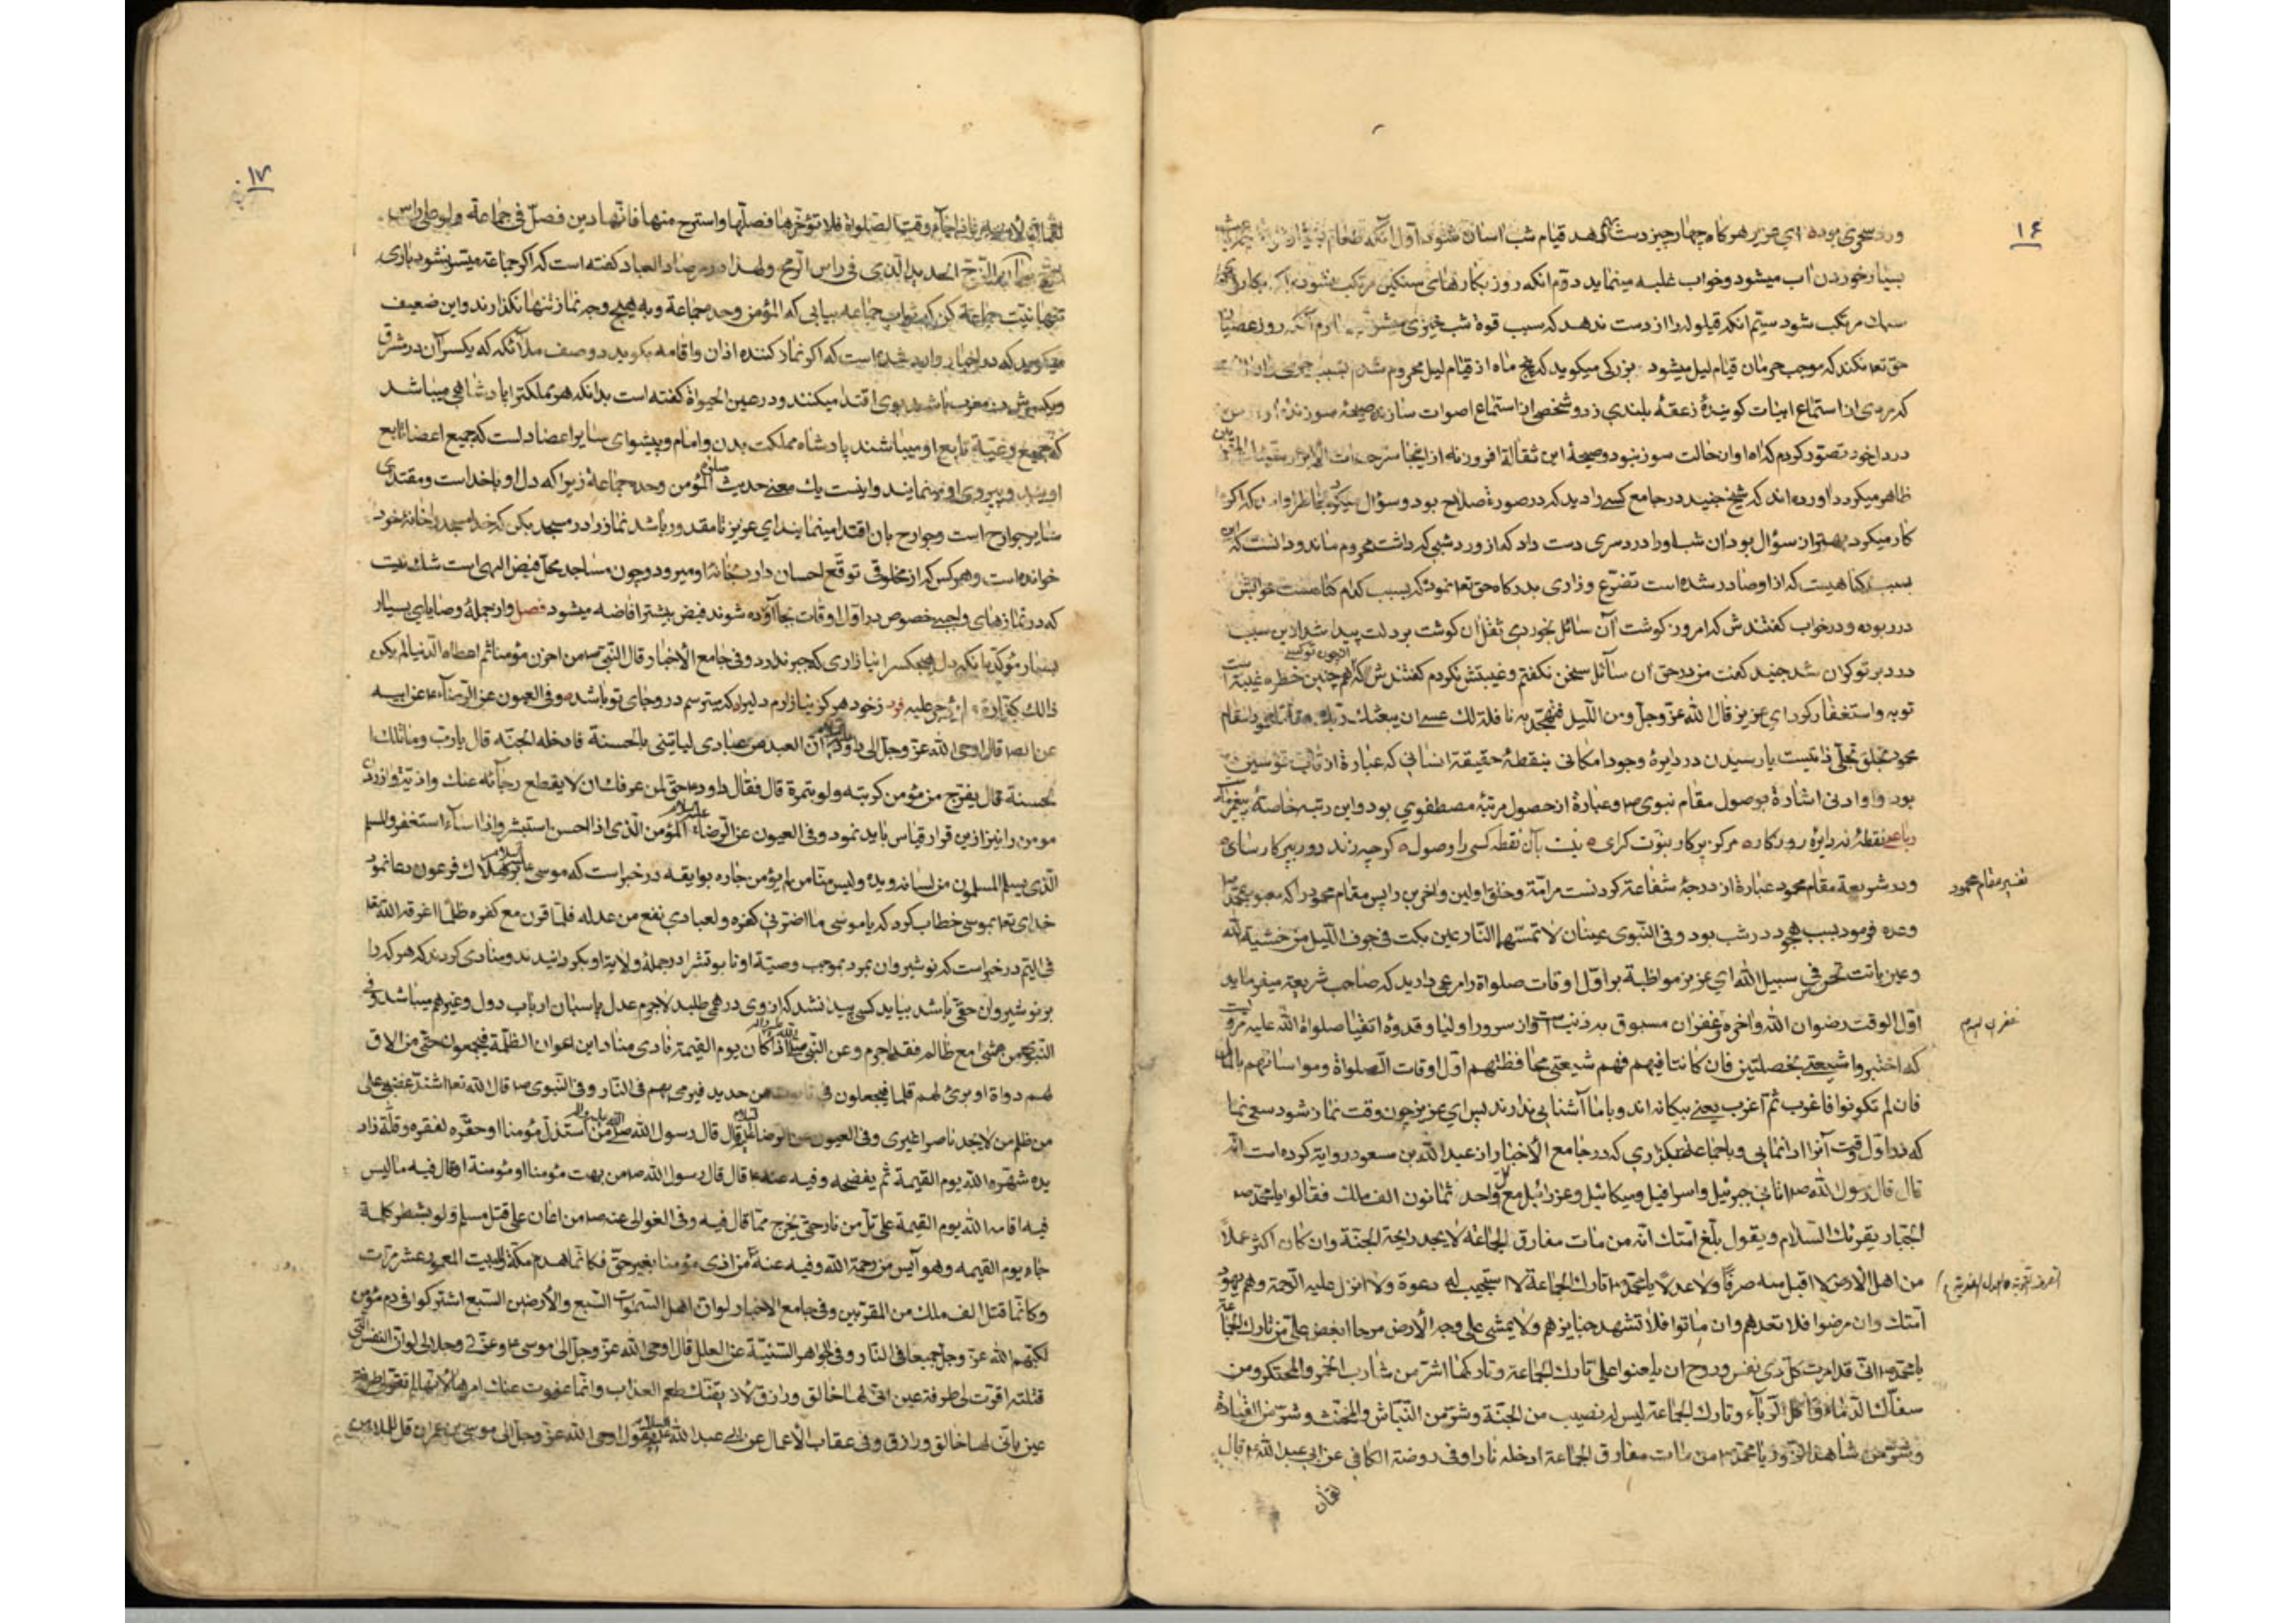 ۱۶
بسیار خوردن آب میشود و خواب غلبه مینماید دوم انکه روز بکارهای سنکین مرتکب نشود
مرتکب شود سیم انکه قیلوله را از دست ندهد که سبب قوة شب خیزی
حق تعا نکند که موجب حرمان قیام لیل میشود بزرکی میکوید که پنج ماه از قیام لیل محروم شدم بسبب
استماع ابیات کوینده زعقهٔ بلندی زد و شخصی از استماع اصوات سازنده صیحهٔ
در دل خود تصور کردم که اه او ان حالت سوز نبود و صیحهٔ این
ظاهر میکردد اورده اند که شیخ جنید در جامع کسی را دید که در صورة صلاح بود و سؤال میکرد
کار میکرد بهتر از سؤال بود ان شب او را دردسری دست داد که از ورد شبی که داشت محروم ماند و دانست که این
بسبب کناهیست که از او صادر شده است تضرّع و زاری بدرکاه حق تعا نمود که بسبب کدام کناهست خوابش
در ربوده و در خواب کفتندش که امروز کوشت آن سائل بخوردی ثقل آن کوشت بر دلت پیدا شد از این سبب
درد بر تو کران شد جنید کفت من در حق ان سائل سخن نکفتم و غیبتش نکردم کفتندش که همچنین خطره غیبتست
از چون تو کسی
توبه و استغفار کرد ای عزیز قال الله عزّ و جلّ و من اللّیل فتهجّد به نافلة لك عسی ان یبعثك ربّك مقاماً محموداً مقام
محمود تجلّی ذاتیست یا رسیدن در دایرهٔ وجود امکانی بنقطهٔ حقیقة انسانی که عبارة از قاب قوسین
بود و او ادنی اشارة بوصول مقام نبوی ص و عبارة از حصول مرتبهٔ مصطفوی بود و این رتبه خاصهٔ پیغمبر
رباعی نقطهٔ نه دایرهٔ روزکار مرکز پرکار نبوّت کرای نیست بآن نقطه کسی را وصول کرچه زند دور بپرکار سای
و در شریعة مقام محمود عبارة از درجهٔ شفاعة کردنست مر امّة و خلق اولین و اخرین را پس مقام محمود را که
تفسیر مقام محمود
وعده فرمود بسبب تهجّد در شب بود و فی النّبوی عینان لا تمسّهما النّار عین بکت فی جوف اللّیل من خشیة الله
و عین باتت تحرس فی سبیل الله ای عزیز مواظبة بر اوّل اوقات صلواة را مرعی دارید که صاحب شریعة میفرماید
اوّل الوقت رضوان الله و اخره غفران مسبوق بذنب است و از سرور اولیا و قدوه اتقیا صلواة الله علیه مرویست
که اختبروا شیعتی بخصلتین فان کانتا فیهم فهم شیعتی محافظتهم اوّل اوقات الصلواة و مواساتهم بالمال
فان لم تکونوا فاغرب ثمّ اغرب یعنی بیکانه اند و با ما آشنایی ندارند پس ای عزیز چون وقت نماز شود سعی نما
که در اوّل وقت آنرا ادا نمایی و با جماعة بکزاری که در جامع الأخبار از عبد الله بن مسعود روایة کرده است انّه
قال قال رسول الله ص اتانی جبرئیل و اسرافیل و میکائیل و عزرائیل مع کل واحد ثمانون الف ملك فقالوا یا محمّد ص
الجبّار یقرئك السّلام و یقول بلّغ امّتك انّه من مات مفارق الجماعة لا یجد رایحة الجنّة و ان کان اکثر عملاً
من اهل الارض لا اقبل منه صرفاً و لا عدلاً یا محمّد ص تارك الجماعة لا استجیب له دعوة و لا انزل علیه الرّحمة و هم یهود
امّتك و ان مرضوا فلا تعدهم و ان ماتوا فلا تشهد جنایزهم و لا یمشی علی وجه الأرض مرحا ابغض علیّ من تارك الجماعة
یا محمّد ص انّی قد امرت کلّ ذی نفس و روح ان یلعنوا علی تارك الجماعة و تارکها اشرّ من شارب الخمر و المحتکر و من
سفّاك الدّماء و آکل الرّباء و تارك الجماعة لیس له نصیب من الجنّة و شرّ من النّبّاش و المخنّث و شرّ من
و شرّ من شاهد الزّور یا محمّد ص من مات مفارق الجماعة ادخله نارا و فی روضة الکافی عن ابی عبد الله ع قال
لقمان
۱۷
لقمان لأبنه یا بنیّ اذا جآء وقت الصّلواة فلا تؤخّرها فصلّها و استرح منها فانّها دین فصلّ فی جماعة و لو علی راس
زجّ الزّجّ الحدید الّذی فی راس الرّمح و لهذا در مرصاد العباد کفته است که اکر جماعة میسّر نشود باری
تنها نیّت جماعة کن که ثواب جماعه بیابی که المؤمن وحده جماعة و به هیچ وجه نماز تنها نکذارند و این ضعیف
میکوید که در اخبار وارد شده است که اکر نماز کننده اذان و اقامه بکوید دو صف ملآئکه که یکسر آن در مشرق
و یکسرش در مغرب باشد بوی اقتدا میکنند و در عین الحیواة کفته است بدانکه هر مملکترا پادشاهی میباشد
که جمیع رعیّة تابع او میباشند پادشاه مملکت بدن و امام و پیشوای سایر اعضا دلست که جمیع اعضا تابع
اویند و پیروی او مینمایند و اینست یك معنی حدیث المؤمن وحده جماعة زیرا که دل او با خداست و مقتدای
سایر جوارح است و جوارح بان اقتدا مینمایند ای عزیز تا مقدور باشد نماز را در مسجد بکن که خدا مسجد را خانهٔ خود
خوانده است و هر کس که از مخلوقی توقّع احسان دارد بخانهٔ او میرود و چون مساجد محلّ فیض الهی است شك نیست
که در نمازهای واجبی خصوص در اوّل اوقات بجا آورده شوند فیض بیشتر افاضه میشود فصل و از جملهٔ وصایای بسیار
بسیار مؤکّد انکه دل هیچکس را نیازاری که جبر ندارد و فی جامع الأخبار قال النّبی ص من احزن مؤمنا ثم اعطاه الدّنیا لم یکن
ذالك کفّارة و لم یؤجر علیه فرد ز خود هرکز نیازارم دلیرا که میترسم در و جای تو باشد و فی العیون عن الرّضا ع عن ابیه
قال اوحی الله عزّ و جلّ الی داود انّ العبد من عبادی لیاتینی بالحسنة فادخله الجنّة قال یا ربّ و ما تلك
الحسنة قال یفرّج من مؤمن کربته و لو بتمرة قال فقال داود ع حق لمن عرفك ان لا یقطع رجآئه عنك و
مومن را نیز از این قرار قیاس باید نمود و فی العیون عن الرّضا ع المؤمن الّذی اذا احسن استبشر و اذا اسآء استغفر و المسلم
الّذی یسلم المسلمون من لسانه و یده و لیس منّا من لم یؤمن جاره بوایقه در خبر است که موسی بر هلاك فرعون دعا نمود
خدای تعا بموسی خطاب کرد که یا موسی ما اضرّنی کفره و لعبادی نفع من عدله فلمّا قرن مع کفره ظلماً اغرقه الله تعا
فی الیمّ در خبر است که نوشیروان بمرد بموجب وصیّة او تابوتش را در جملهٔ ولایة او بکردانیدند و منادی کردند که هر که را
بر نوشیروان حقّی باشد بیاید کسی پیدا نشد که از وی درهمی طلبد لاجرم عدل پاسبان ارباب دول و غیرهم میباشد و فی
النّبوی من مشی مع ظالم فقد اجرم و عن النّبی اذا کان یوم القیمة نادی مناد این اعوان الظّلمة فیجمعون حتّی من لاق
لهم دواة او بری لهم قلما فیجعلون فی تابوت من حدید فیرمی بهم فی النّار و فی النّبوی ص قال الله تعا اشتدّ غضبی علی
من ظلم من لا یجد ناصرا غیری و فی العیون عن الرضا قال قال رسول الله من استذلّ مؤمنا او حقّره لفقره و قلّة ذات
یده شهّره الله یوم القیمة ثمّ یفضحه و فیه عنه ع قال قال رسول الله ص من بهت مؤمنا او مؤمنة او قال فیه ما لیس
فیه اقامه الله یوم القیمة علی تلّ من نار حتّی یخرج ممّا قال فیه و فی الغوالی عنه ص من اعان علی قتل مسلم و لو بشطر کلمة
جاء یوم القیمه و هو آیس من رحمة الله و فیه عنه من اذی مؤمنا بغیر حقّ فکانّما هدم مکّة و البیت المعمور عشر مرّات
و کانّما قتل الف ملك من المقرّبین و فی جامع الاخبار لو انّ اهل السّموات السّبع و الأرضین السّبع اشترکوا فی دم مؤمن
لکبّهم الله عزّ و جلّ جمیعا فی النّار و فی الجواهر السّنیّة عن العلل قال اوحی الله عزّ و جلّ الی موسی ع و عزّتی و جلالی لو انّ النفس الّتی
قتلته اقرّت لی طرفة عین انّی لها خالق و رازق لأذیقنّك طعم العذاب و انّما عفوت عنك امرها لأنّها لم تقرّ لی طرفة
عین بانّی لها خالق و رازق و فی عقاب الأعمال عن ابی عبد الله یقول اوحی الله عزّ و جلّ الی موسی بن عمران قل للملاء من